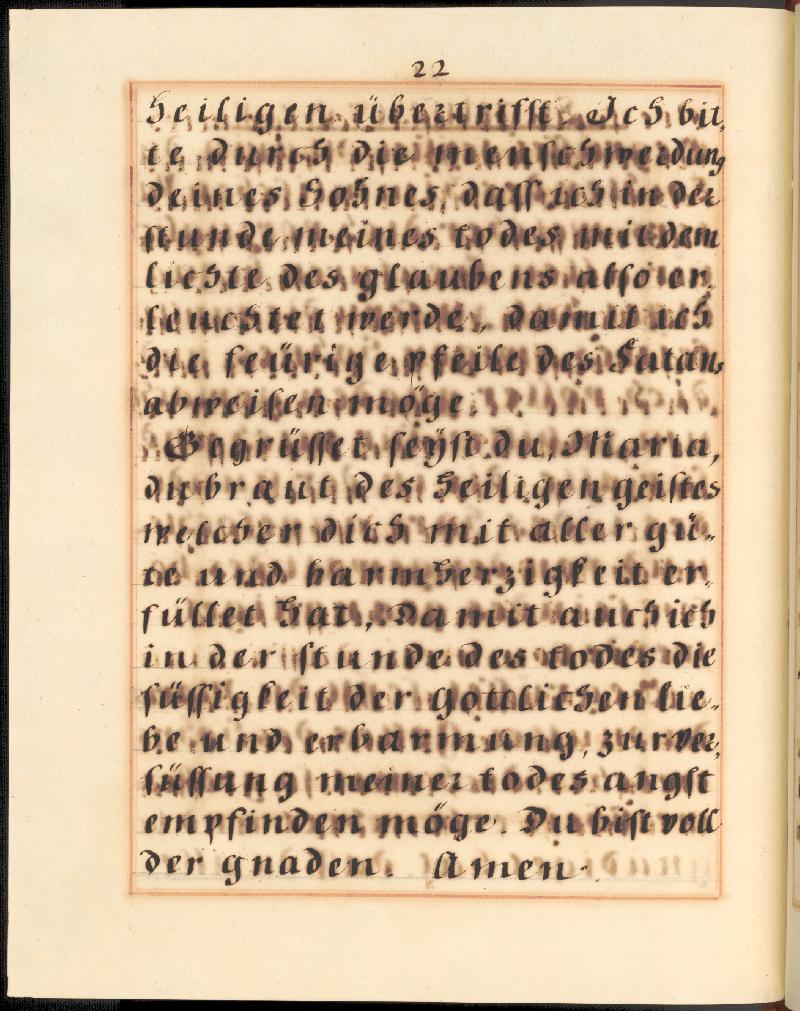 22
heiligen übertrifft. Ich bit,
te durch die menschwerdung
deines Sohnes, dass ich in der
stunde meines todes mit dem
lichte des glaubens also er,
leuchtet werde, damit ich
die feürige pfeile des Satans
abweisen möge.
Gegrüsset seÿst du, Maria,
du braut des heiligen geistes
welcher dich mit aller gü,,
te und barmherzigkeit er,
füllet hat, Damit auch ich
in der stunde des todes die
süssigkeit der Göttlichen lie,,
be und erbarmung, zur ver,
süssung meiner todes angst
empfinden möge. Du bist voll
der gnaden. Amen.